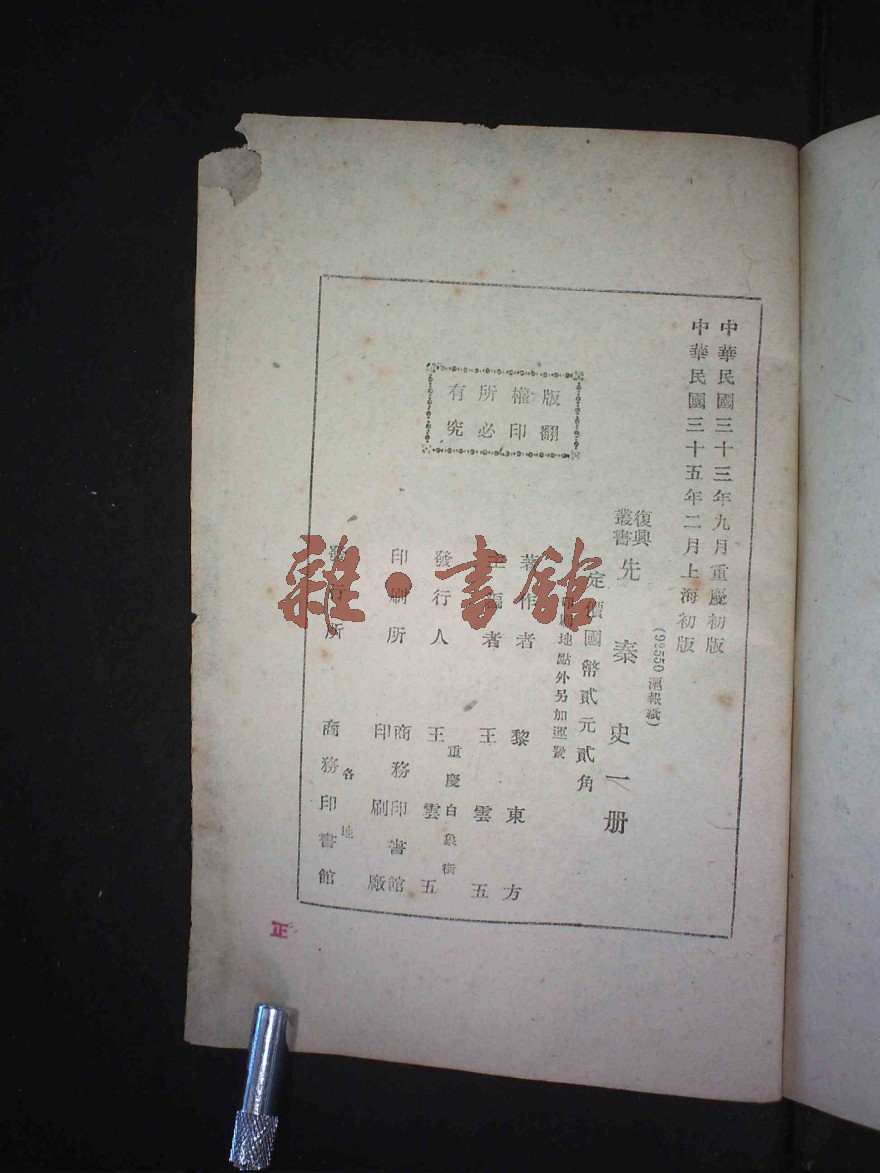 中華民國三十三年九月重慶初版
中華民國三十五年二月上海初版
(99550滬報紙)
復興叢書 先秦史一册
定價國幣貳元貳角
印刷地點外另加運費
著作者 黎東方
主編者 王雲五
重慶白象街
發行人 王雲五
印刷所 商務印書館印刷廠
各地
發行所 商務印書館
版權所有
翻印必究
正
雜·書館